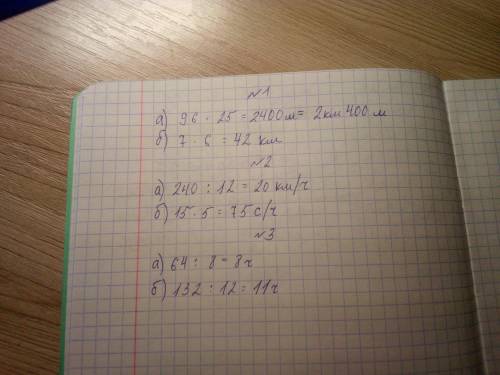 №1
а) 96 · 25 = 2400 м = 2 км 400 м
б) 7 · 6 = 42 км
№2
а) 240 : 12 = 20 км/ч
б) 15 · 5 = 75 с/ч
№3
а) 64 : 8 = 8 ч
б) 132 : 12 = 11 ч